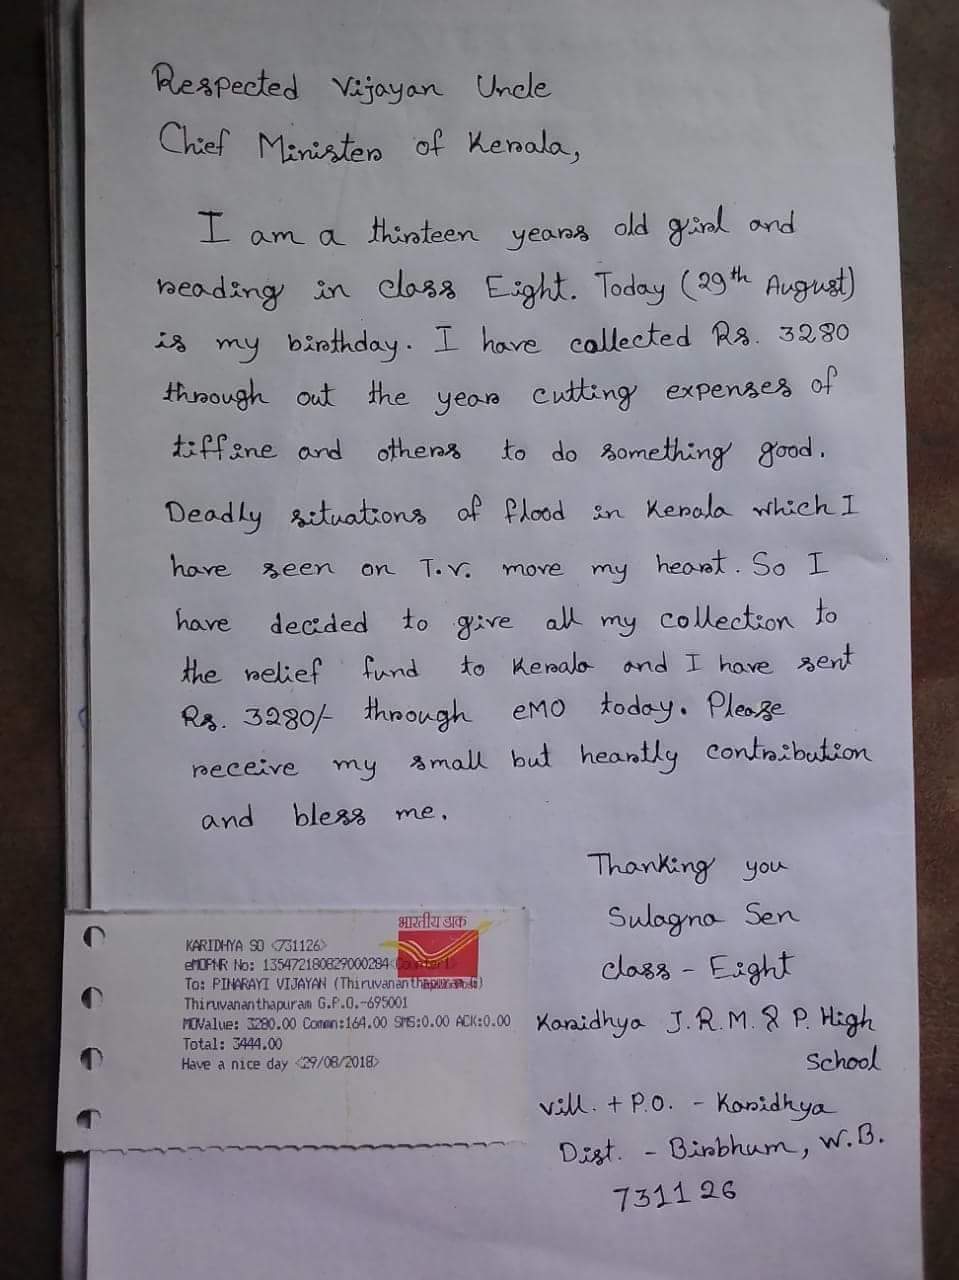 Respected Vijayan Uncle
Chief Minister of Kerala,
I am a thirteen years old girl and
reading in class Eight. Today (29th August)
is my birthday. I have collected Rs. 3280
through out the year cutting expenses of
tiffine and others to do something good.
Deadly situations of flood in Kerala which I
have seen on T.V. move my heart. So I
have decided to give all my collection to
the relief fund to Kerala and I have sent
Rs. 3280/- through eMO today. Please
receive my small but heartly contribution
and bless me.
Thanking you
Sulagna Sen
class - Eight
Karidhya J.R.M. & P. High
School
vill. + P.O. - Karidhya
Dist. - Birbhum, W.B.
731126
भारतीय डाक
KARIDHYA SO <731126>
eMOPNR No: 135472180829000284
To: PINARAYI VIJAYAN (Thiruvananthapuram
Thiruvananthapuram G.P.O.-695001
MOValue: 3280.00 Commn:164.00 SMS:0.00 ACK:0.00
Total: 3444.00
Have a nice day <29/08/2018>